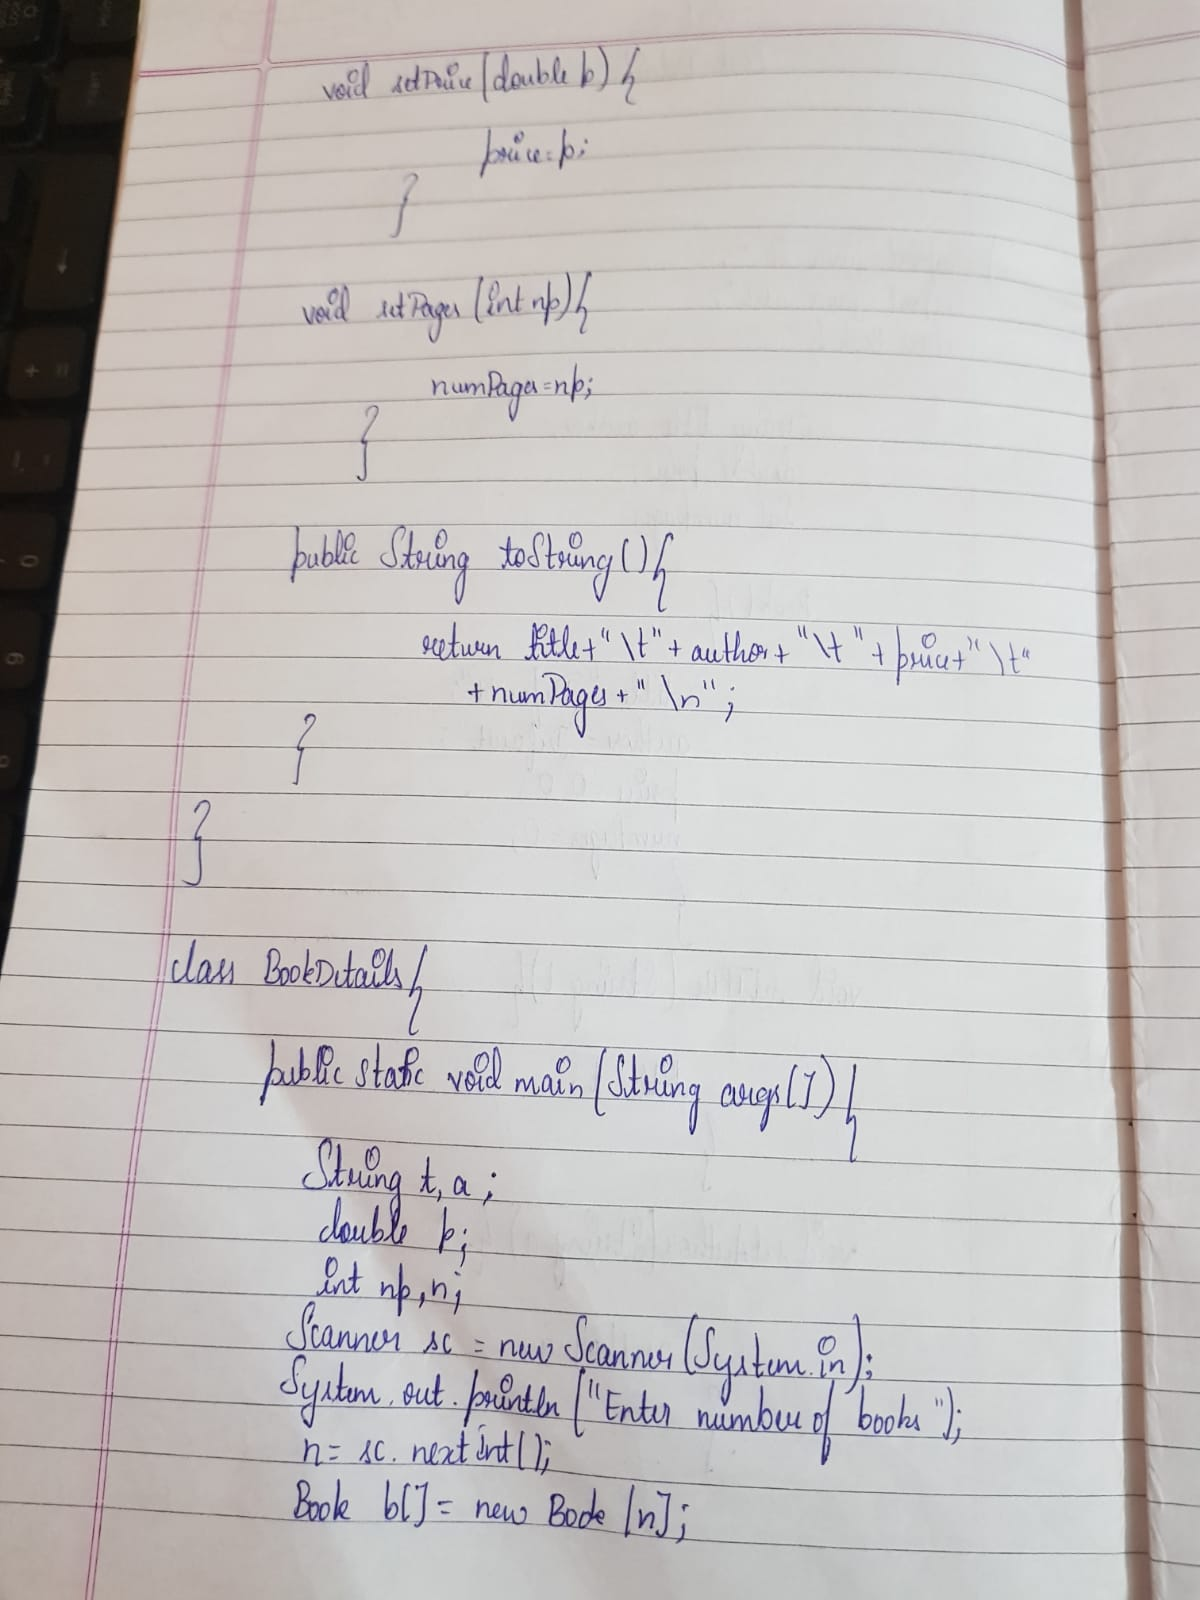 void setPrice(double p){
price=p;
}
void setPages(int np){
numPages=np;
}
public String toString(){
return title+"\t"+author+"\t"+price+"\t"
+numPages+"\n";
}
}
class BookDetails{
public static void main(String args[]){
String t,a;
double p;
int np,n;
Scanner sc = new Scanner(System.in);
System.out.println("Enter number of books");
n= sc.nextint();
Book b[]= new Book[n];